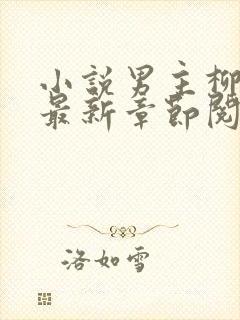 小説男主柳
最新章節閱
洛如雪